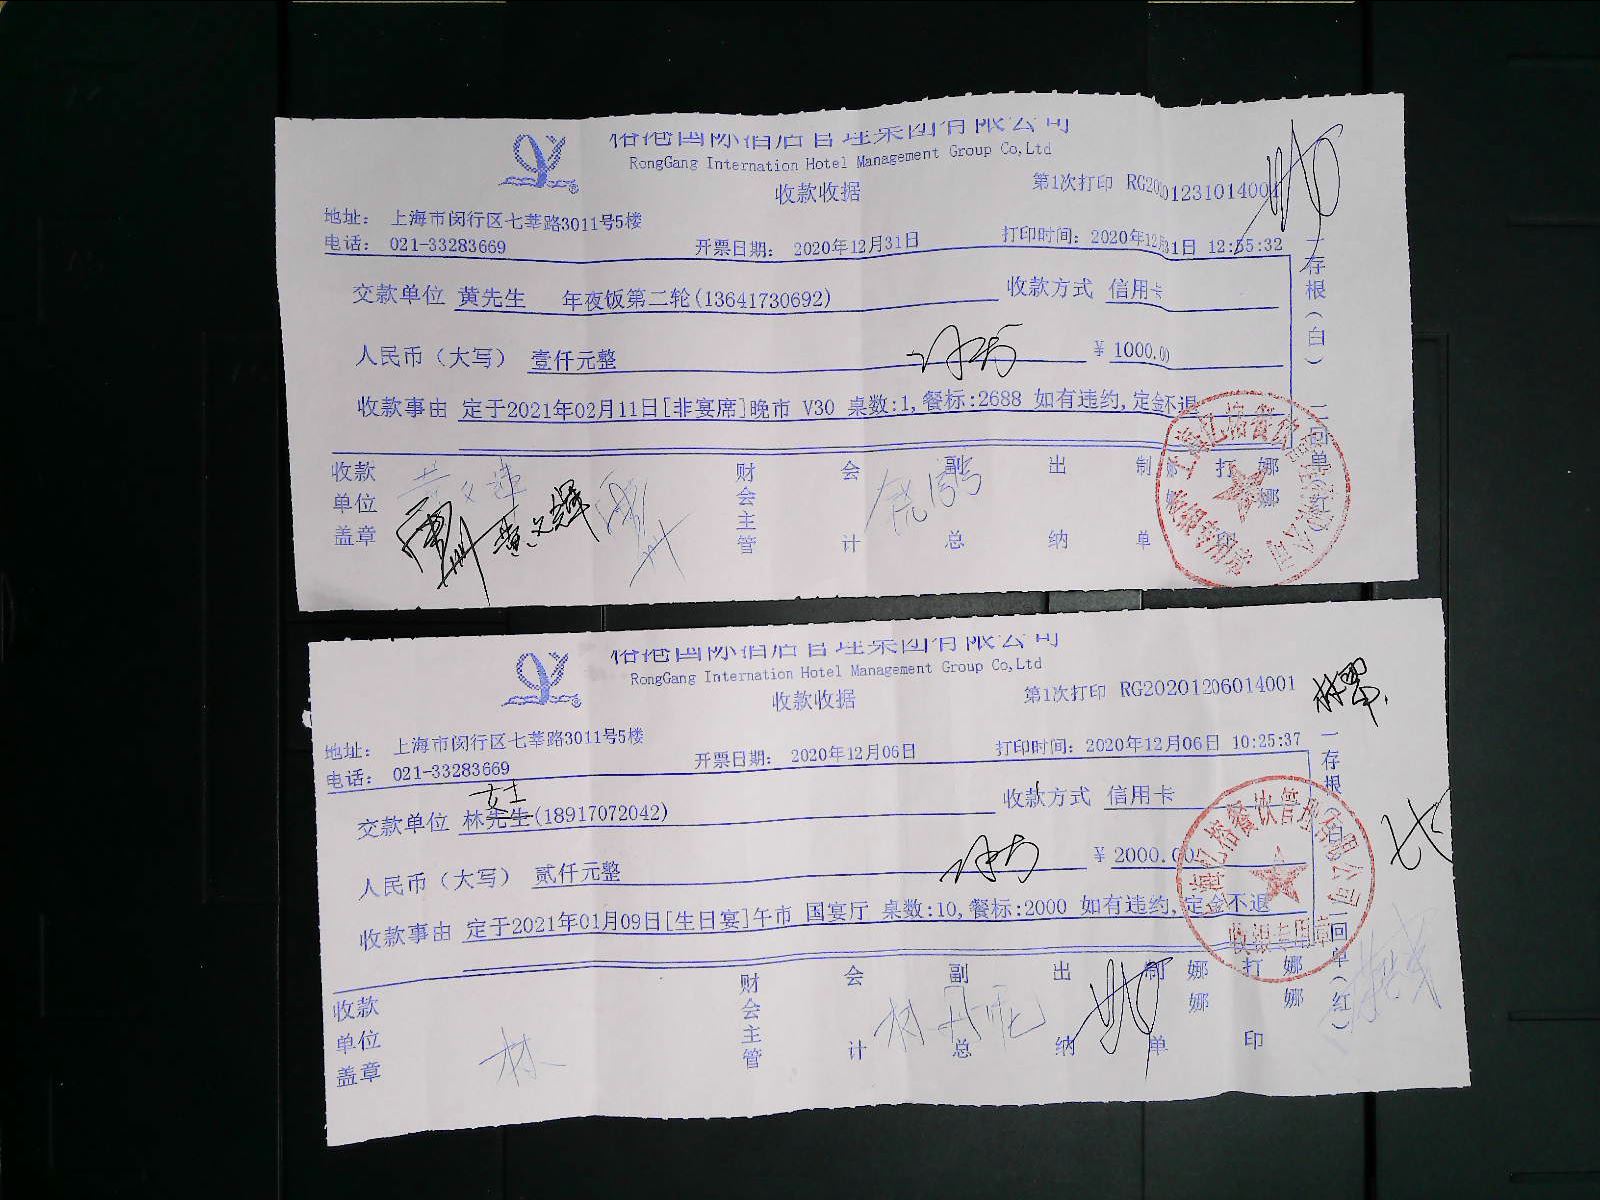 国际酒店管理集团有限公司
RongGang Internation Hotel Management Group Co,Ltd
收款收据
第1次打印 RG20201231014001
地址： 上海市闵行区七莘路3011号5楼
电话： 021-33283669
开票日期： 2020年12月31日
打印时间：2020年12月31日 12:55:32
交款单位 黄先生 年夜饭第二轮(13641730692)
收款方式 信用卡
人民币（大写） 壹仟元整
￥ 1000.00
收款事由 定于2021年02月11日[非宴席]晚市 V30 桌数:1,餐标:2688 如有违约,定金不退
收款单位盖章 财会主管 会计 副总 出纳 制单 娜娜 打印 娜娜
黄文辉
一存根（白） 二回单（红）
收银专用章
国际酒店管理集团有限公司
RongGang Internation Hotel Management Group Co,Ltd
收款收据
第1次打印 RG20201206014001
地址： 上海市闵行区七莘路3011号5楼
电话： 021-33283669
开票日期： 2020年12月06日
打印时间：2020年12月06日 10:25:37
女士
交款单位 林先生(18917072042)
收款方式 信用卡
人民币（大写） 贰仟元整
￥ 2000.00
收款事由 定于2021年01月09日[生日宴]午市 国宴厅 桌数:10,餐标:2000 如有违约,定金不退
收款单位盖章 财会主管 会计 副总 出纳 制单 娜娜 打印 娜娜
林
一存根（白） 二回单（红）
上海忆裕餐饮管理有限公司
收银专用章